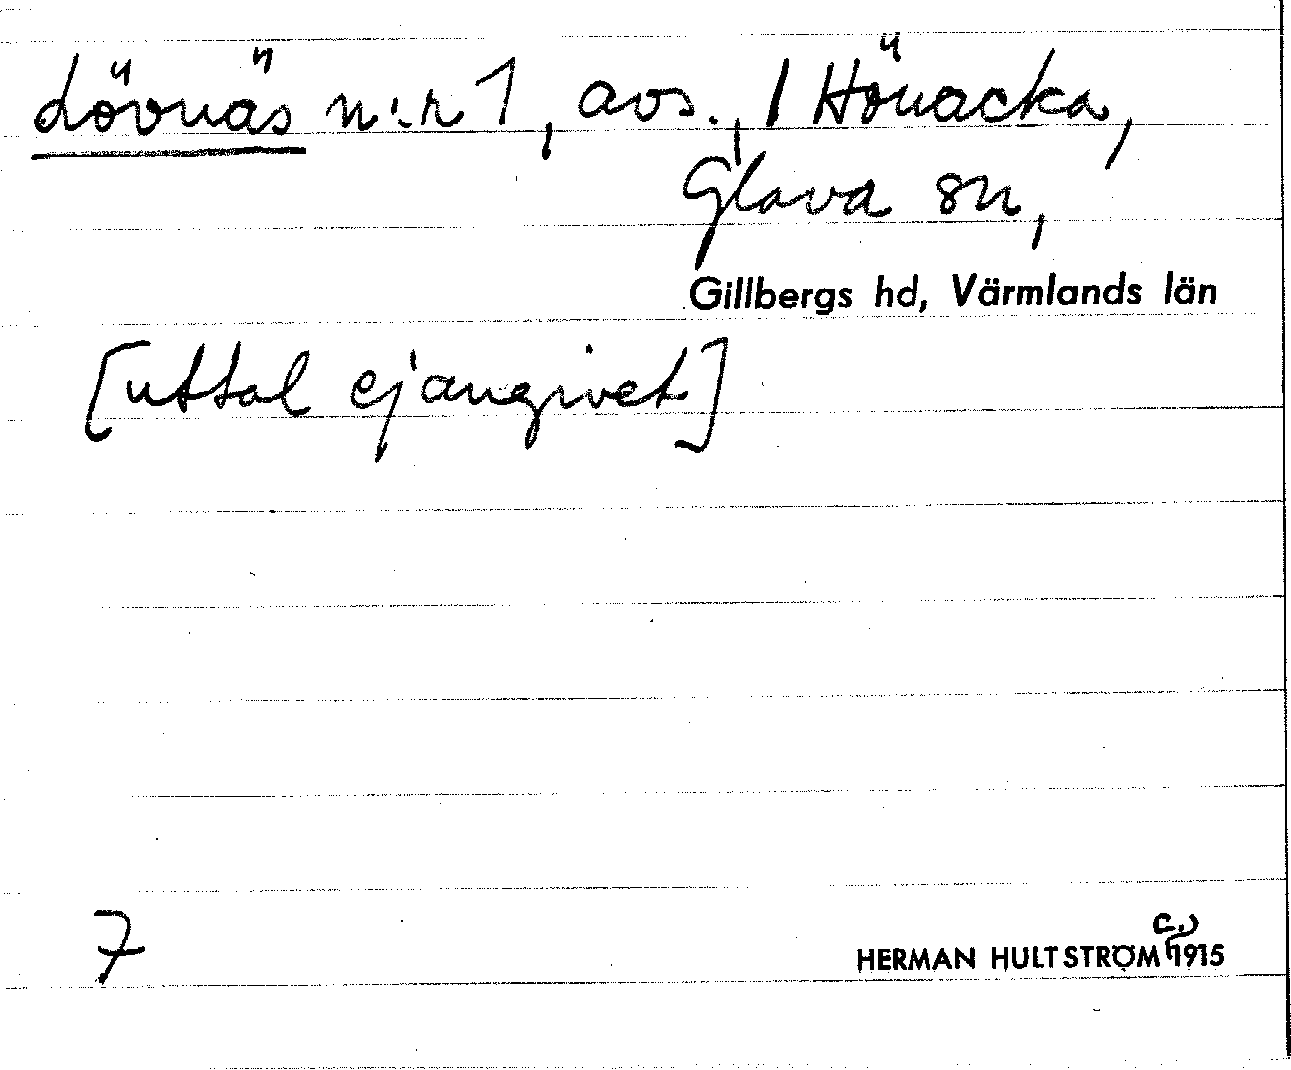 Lövnäs n:r 1, avs., / Hönacka,
Glava sn,
Gillbergs hd, Värmlands län
[uttal ej angivet]
c.)
7 HERMAN HULTSTRÖM 1915